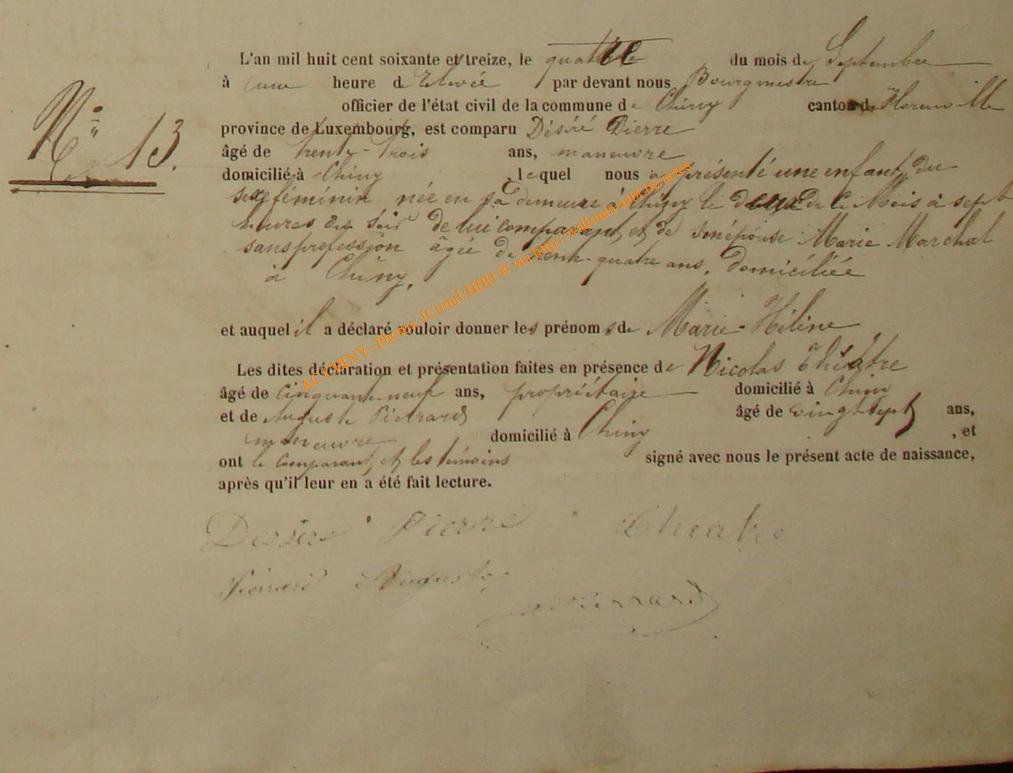 L'an mil huit cent soixante et treize, le quatre du mois de Septembre
à une heure de Relevée par devant nous Bourgmestre
officier de l'état civil de la commune de Chiny canton de Florenville
N° 13.
province de Luxembourg, est comparu Désiré Pierre
âgé de trente-trois ans, manœuvre
domicilié à Chiny, lequel nous a présenté une enfant du
sexe féminin née en sa demeure à Chiny le deux de ce Mois à sept
heures du soir de lui comparant et de son épouse Marie Marchal
sans profession âgée de trente-quatre ans, domiciliée
à Chiny,
et auquel il a déclaré vouloir donner les prénoms de Marie-Héline
Les dites déclaration et présentation faites en présence de Nicolas Théâtre
âgé de cinquante neuf ans, propriétaire domicilié à Chiny
et de Auguste Pierrard âgé de vingt-sept ans,
manœuvre domicilié à Chiny, et
ont le comparant et les témoins signé avec nous le présent acte de naissance,
après qu'il leur en a été fait lecture.
Désiré Pierre Theatre
Pierrard Auguste
Pierrard
ACTCHINY - photos JComil-HDH